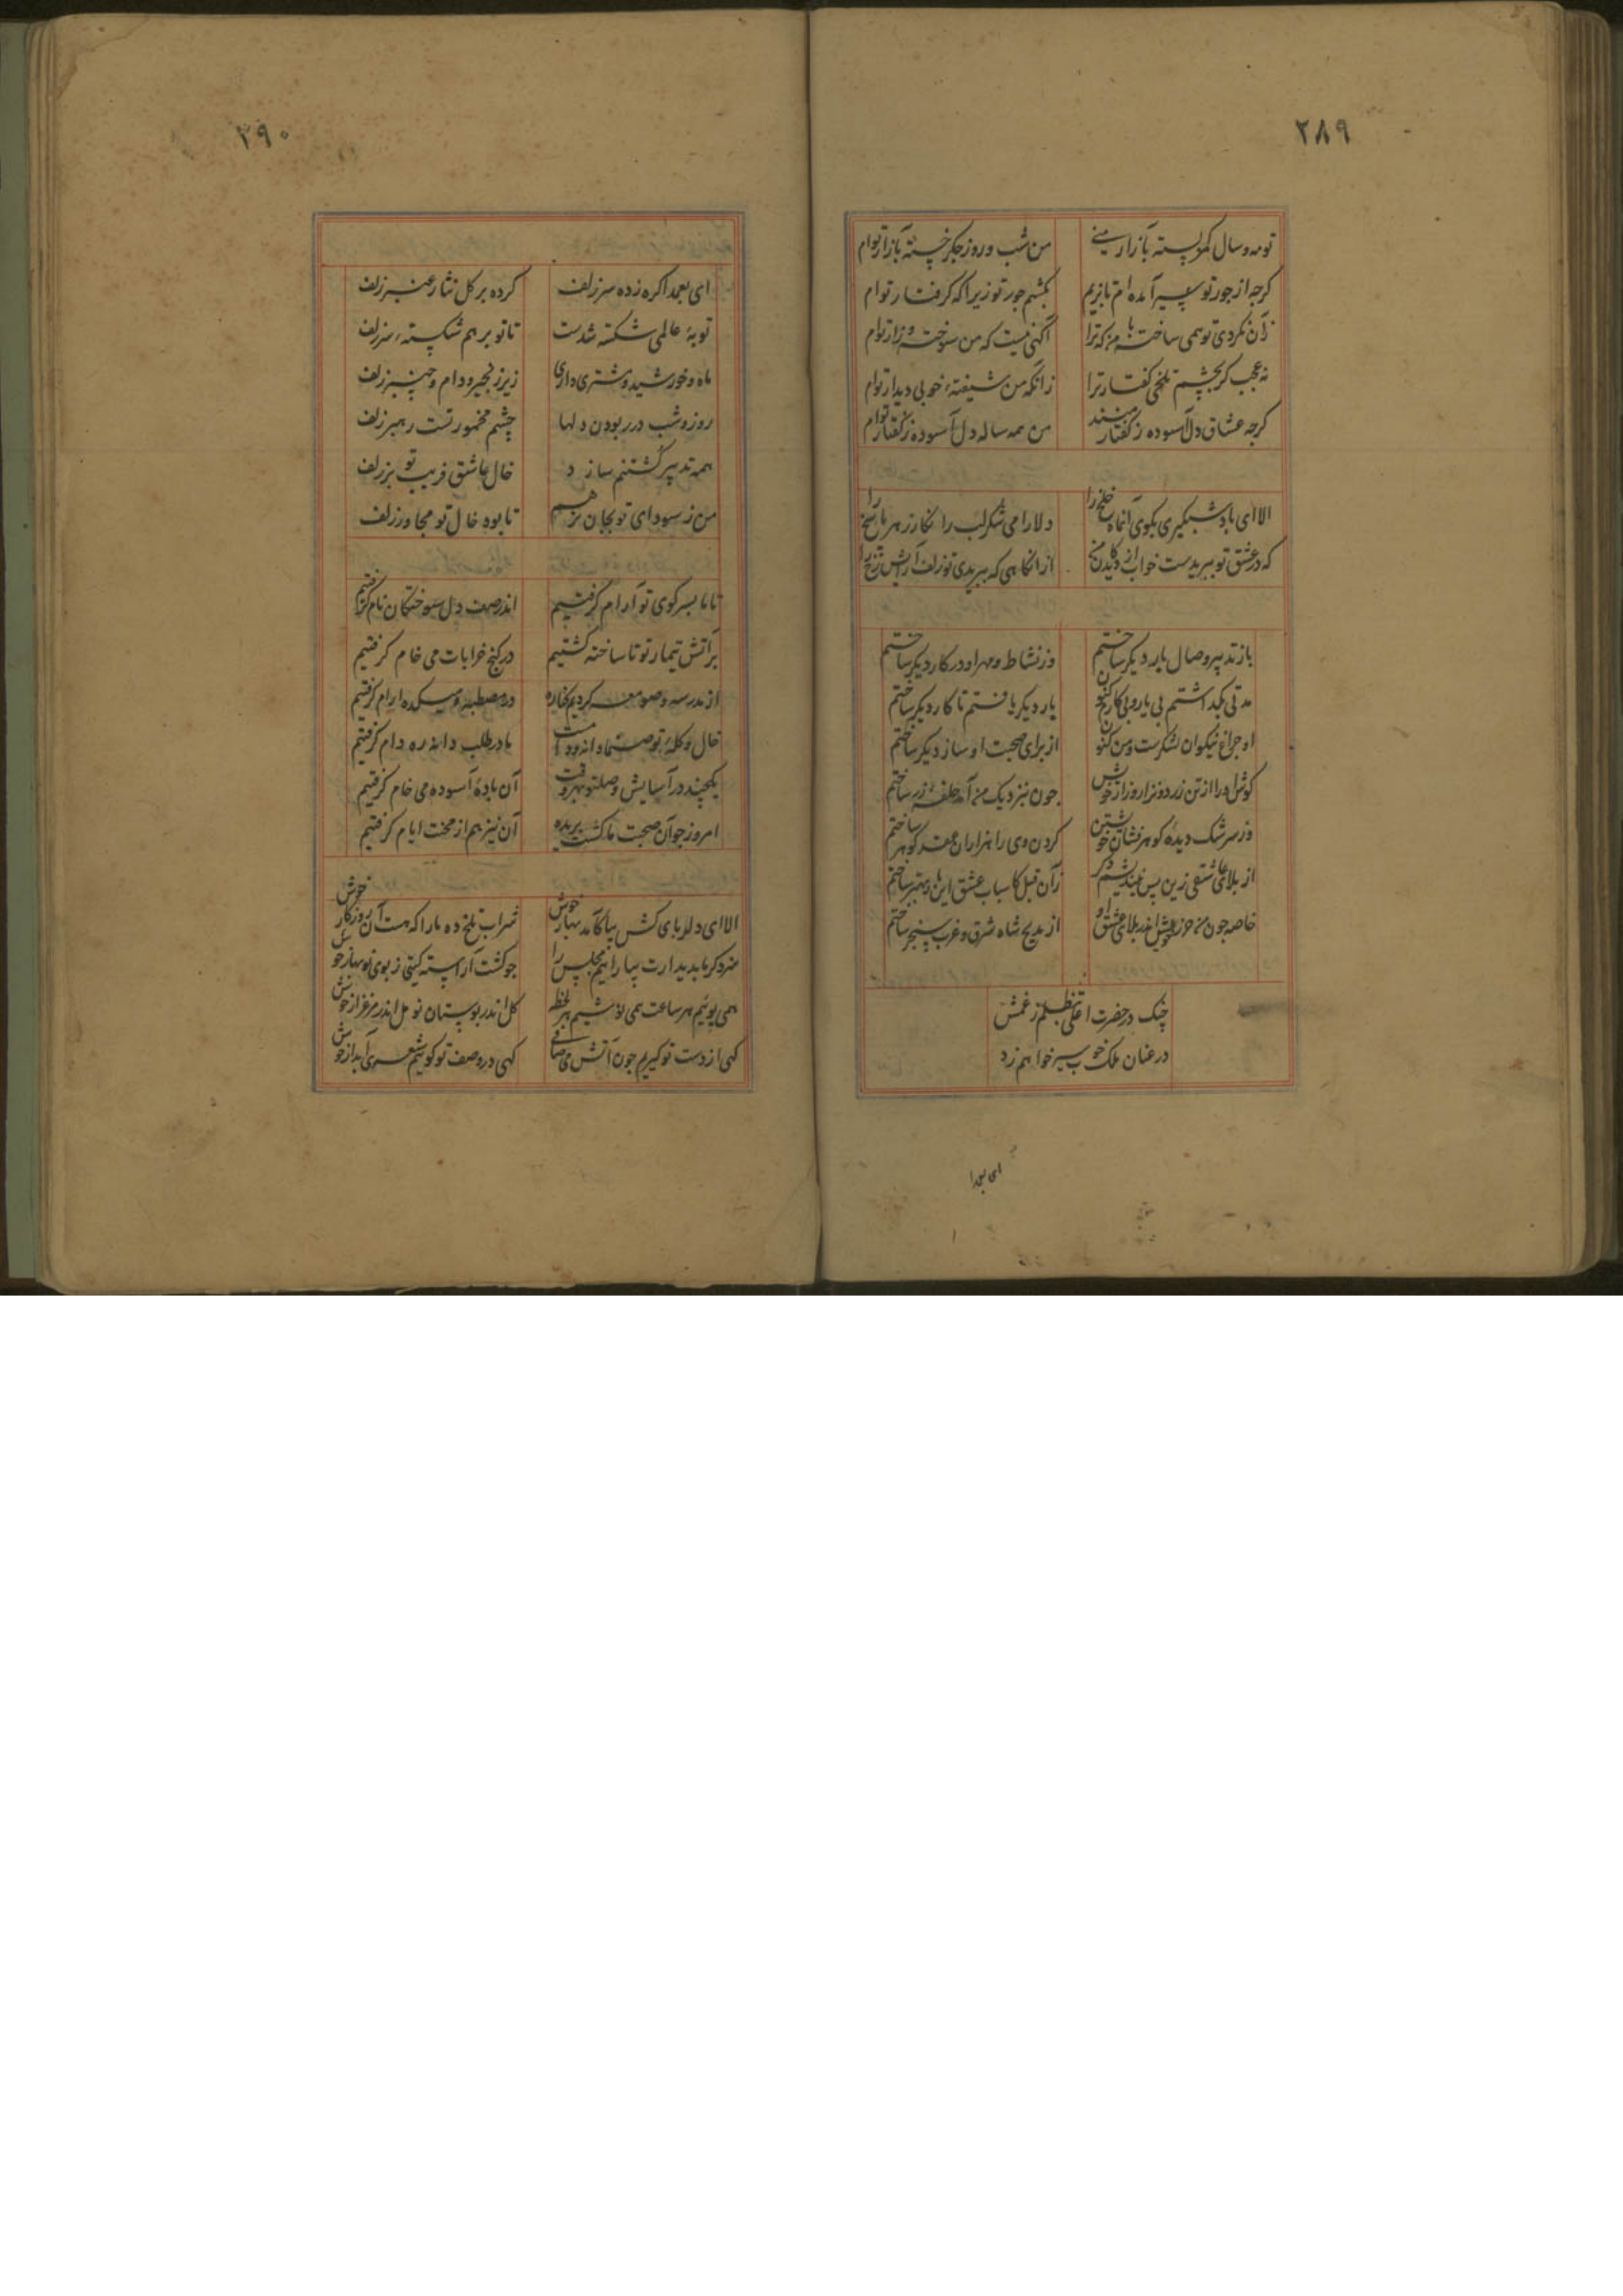 ۲۸۹
تو مه و سال کمر بسته بآزار منی
من شب و روز جگر خسته بآزار توام
گرچه از جور تو سیر آمده ام تا بزیم
بکشم جور تو زیرا که گرفتار توام
زان نکردی تو همی ساخته با من که ترا
آگهی نیست که من سوخته و زار توام
نه عجب گر بچشم تلخی گفتار ترا
زانکه من شیفتهٔ خوبی دیدار توام
گرچه عشاق دل آسوده ز گفتار منند
من همه ساله دل آسوده ز گفتار توام
الا ای باد شبگیری بکوی آنماه خلخ را
دلارامی شکرلب را نگار زهر پاسخ را
که در عشق تو ببریدست خواب از دیدگان من
از انگاهی که ببریدی تو زلف آرایش رخ را
باز تدبیر وصال یار دیگر ساختم
وز نشاط و مهر او در کار دیگر ساختم
مدتی بگذاشتم بی یار و بی کار کنون
یار دیگر یافتم تا کار دیگر ساختم
او چراغ نیکوان لشکرست و من کنون
از برای صحبت او ساز دیگر ساختم
گوش او را از تن زرد و نزار و زار خویش
چون بنزدیک من آمد حلقهٔ زر ساختم
وز سرشک دیدهٔ گوهر فشان خویشتن
گردن وی را هزاران عقد گوهر ساختم
از بلای عاشقی زین پس نیندیشم دگر
زآن قبل کاسباب عشق این بار بهتر ساختم
خاصه چون من حرز خویش اندر بلای عشق او
از مدیح شاه شرق و غرب سنجر ساختم
چنگ در حضرت اعلی تظلم ز غمش
در عنان ملک خوب سیر خواهم زد
ای بعمدا
۲۹۰
ای بعمدا گره زده سر زلف
کرده بر گل نثار عنبر زلف
توبهٔ عالمی شکسته شدست
تا تو بر هم شکستهٔ سر زلف
ماه و خورشید و مشتری داری
زیر زنجیر و دام و چنبر زلف
روز و شب در ربودن دلها
چشم مخمور تست رهبر زلف
همه تدبیر کشتنم سازد
خال عاشق فریب تو بر زلف
من ز سودای تو بجان نرهم
تا بود خال تو مجاور زلف
تا ما بسر کوی تو آرام گرفتیم
اندر صف دل سوختگان نام گرفتیم
بر آتش تیمار تو تا ساخته گشتیم
در کنج خرابات می خام گرفتیم
از مدرسه و صومعه کردیم کناره
در مصطبه و میکده آرام گرفتیم
خال و کلهٔ تو صنما دانه و دامست
ما در طلب دانه ره دام گرفتیم
یکچند در آسایش وصلت بهر وقت
آن بادهٔ آسوده می خام گرفتیم
امروز چو آن صحبت ما گشت بریده
آن نیز هم از محنت ایام گرفتیم
الا ای دلربای کش بیا کآمد بهار خوش
شراب تلخ ده ما را که هست آن روزگار خوش
سزد گر ما بدیدارت بیارائیم مجلس را
چو گشت آراسته گیتی ز بوی نوبهار خوش
همی بوئیم هر ساعت همی نوشیم هر لحظه
گل اندر بوستان نو مل اندر مرغزار خوش
گهی از دست تو گیریم چون آتش می صافی
گهی در وصف تو گوئیم شعری آبدار خوش